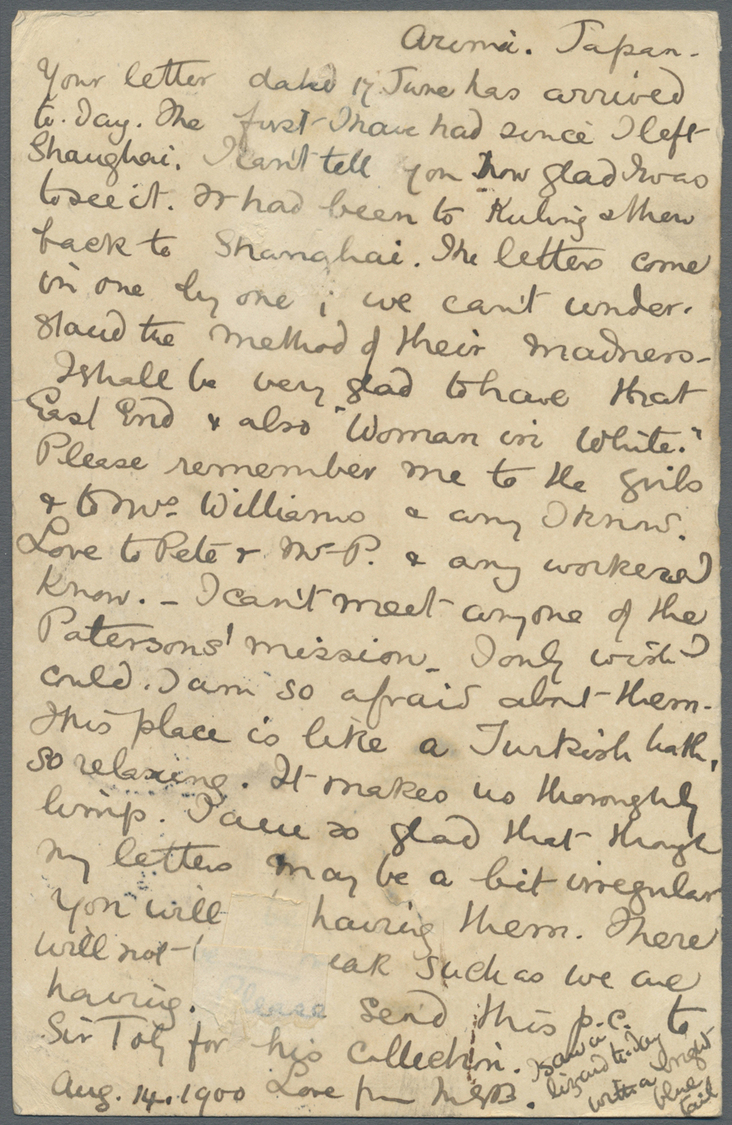 Arima. Japan.
Your letter dated 17 June has arrived
to-day. The first I have had since I left
Shanghai. I can't tell you how glad I was
to see it. It had been to Kuling & then
back to Shanghai. The letters come
in one by one; we can't under-
stand the method of their madness-
I shall be very glad to have that
East End & also "Woman in White."
Please remember me to the girls
& to Mrs Williams & any I know.
Love to Pete & Mr P. & any workers I
know. - I can't meet anyone of the
Patersons' mission - I only wish I
could. I am so afraid about them.
This place is like a Turkish bath,
so relaxing. It makes us thoroughly
limp. I am so glad that though
my letters may be a bit irregular
you will having them. There
will not such as we are
having. Please send this p.c. to
Sir Toby for his collection.
Aug. 14. 1900 Love from
I saw a
lizard to-day
with a bright
blue
tail